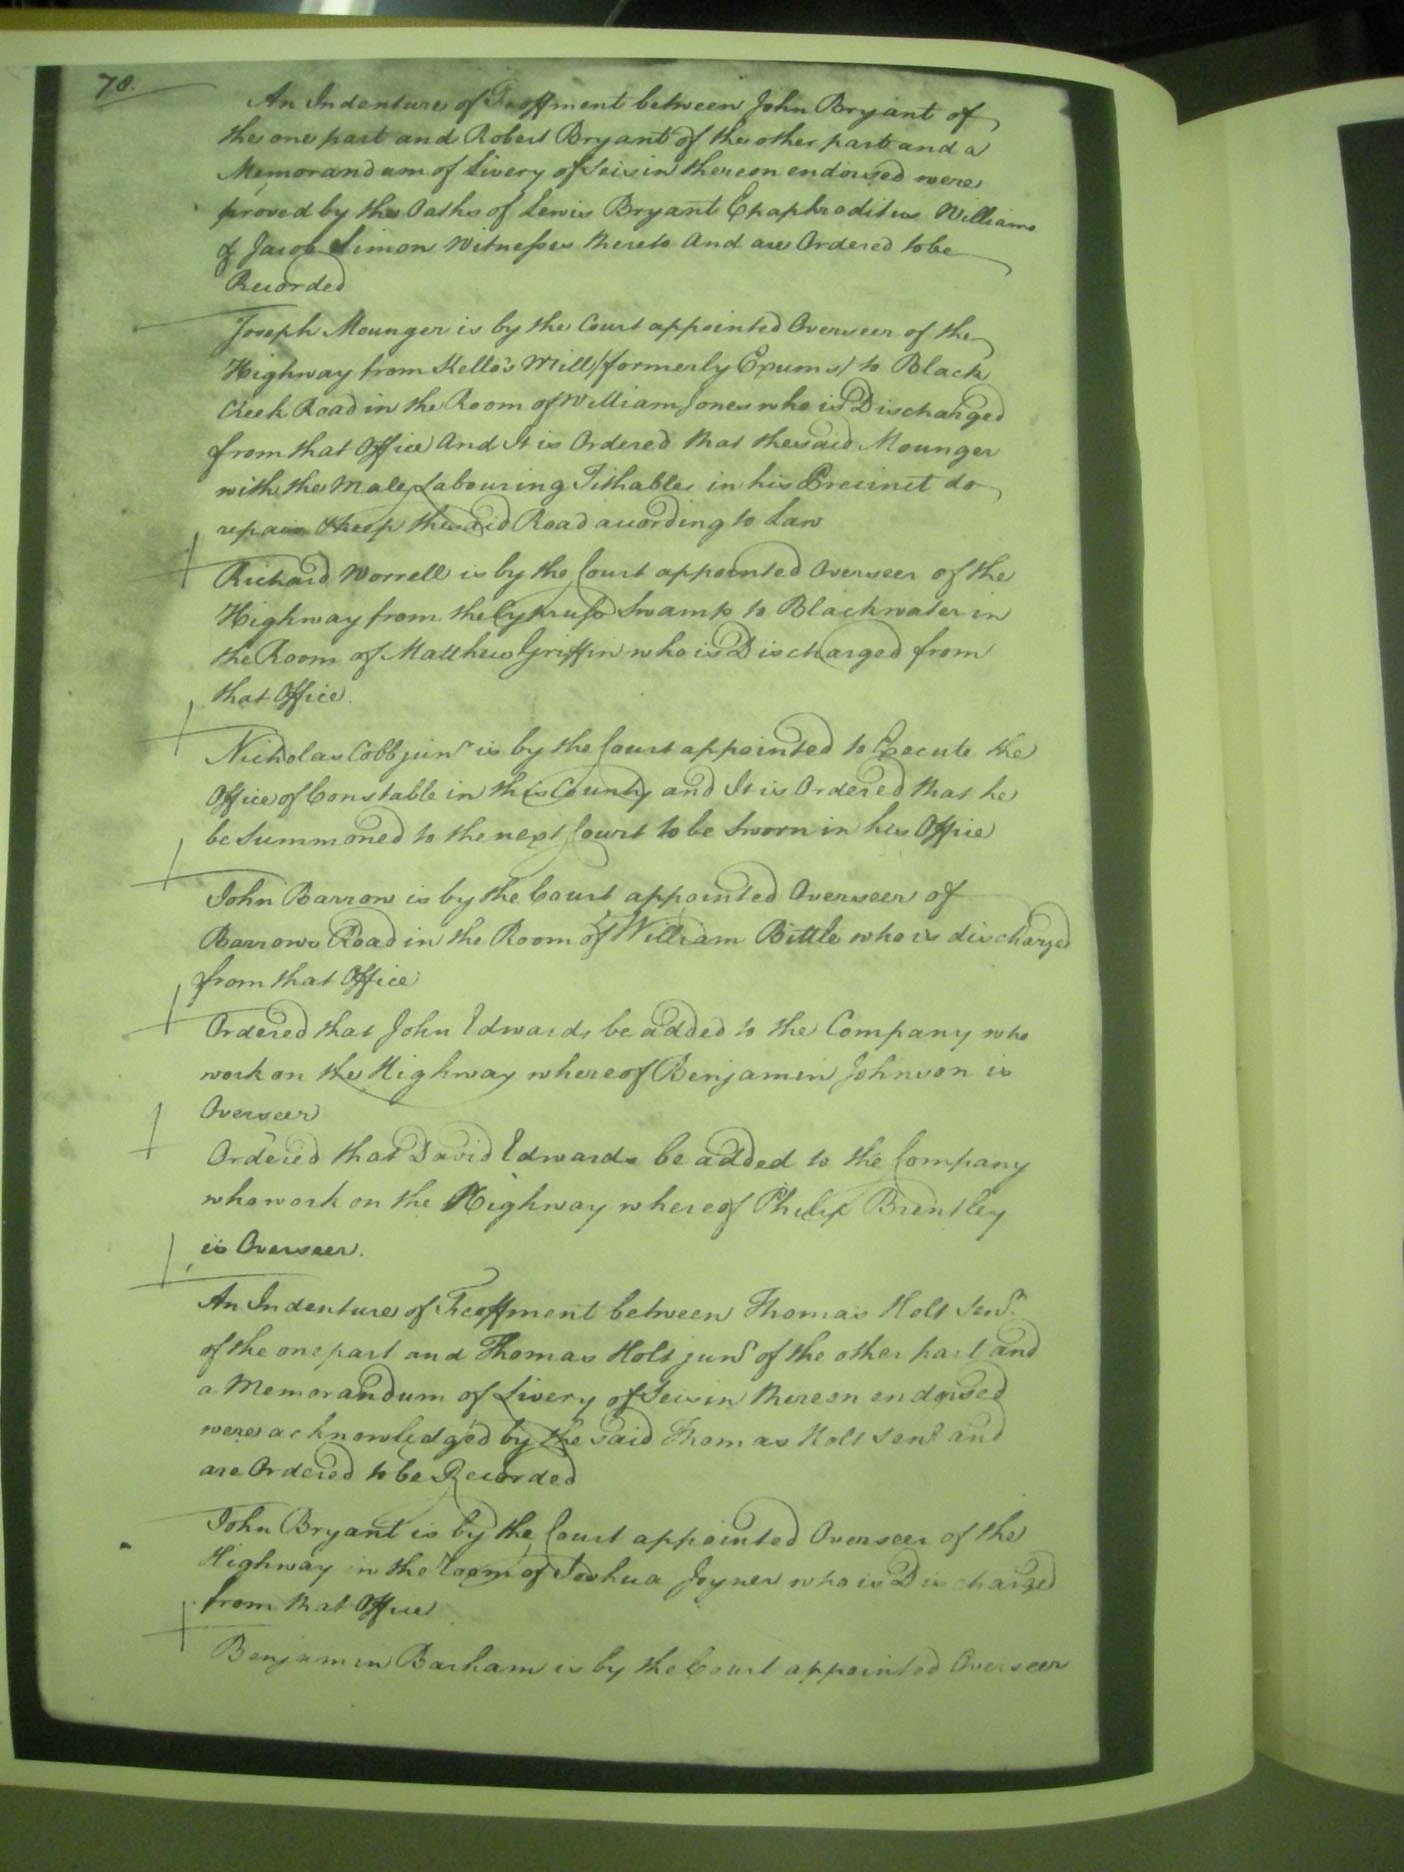 78.
An Indenture of Feoffment between John Bryant of
the one part and Robert Bryant of the other part and a
Memorandum of Livery of Seisin thereon endorsed were
proved by the Oaths of Lewis Bryant Epaphroditus Williams
& Jacob Simon Witnesses thereto And are Ordered to be
Recorded
Joseph Mounger is by the Court appointed Overseer of the
Highway from Kello's Mill (formerly Exums) to Black
Creek Road in the Room of William Jones who is Discharged
from that Office And It is Ordered that the said Mounger
with the Male Labouring Tithables in his Precinct do
repair & keep the said Road according to Law
Richard Worrell is by the Court appointed Overseer of the
Highway from the Cypruss Swamp to Blackwater in
the Room of Matthew Griffin who is Discharged from
that Office.
Nicholas Cobb junr is by the Court appointed to Execute the
Office of Constable in this County and It is Ordered that he
be Summoned to the next Court to be Sworn in his Office
John Barrow is by the Court appointed Overseer of
Barrows Road in the Room of William Bittle who is discharged
from that Office
Ordered that John Edwards be added to the Company who
work on the Highway whereof Benjamin Johnson is
Overseer
Ordered that David Edwards be added to the Company
who work on the Highway whereof Philip Brantley
is Overseer.
An Indenture of Feoffment between Thomas Holt Senr.
of the one part and Thomas Holt junr of the other part and
a Memorandum of Livery of Seisin thereon endorsed
were acknowledged by the said Thomas Holt Senr and
are Ordered to be Recorded
John Bryant is by the Court appointed Overseer of the
Highway in the Room of Joshua Joyner who is Discharged
from that Office
Benjamin Barham is by the Court appointed Overseer